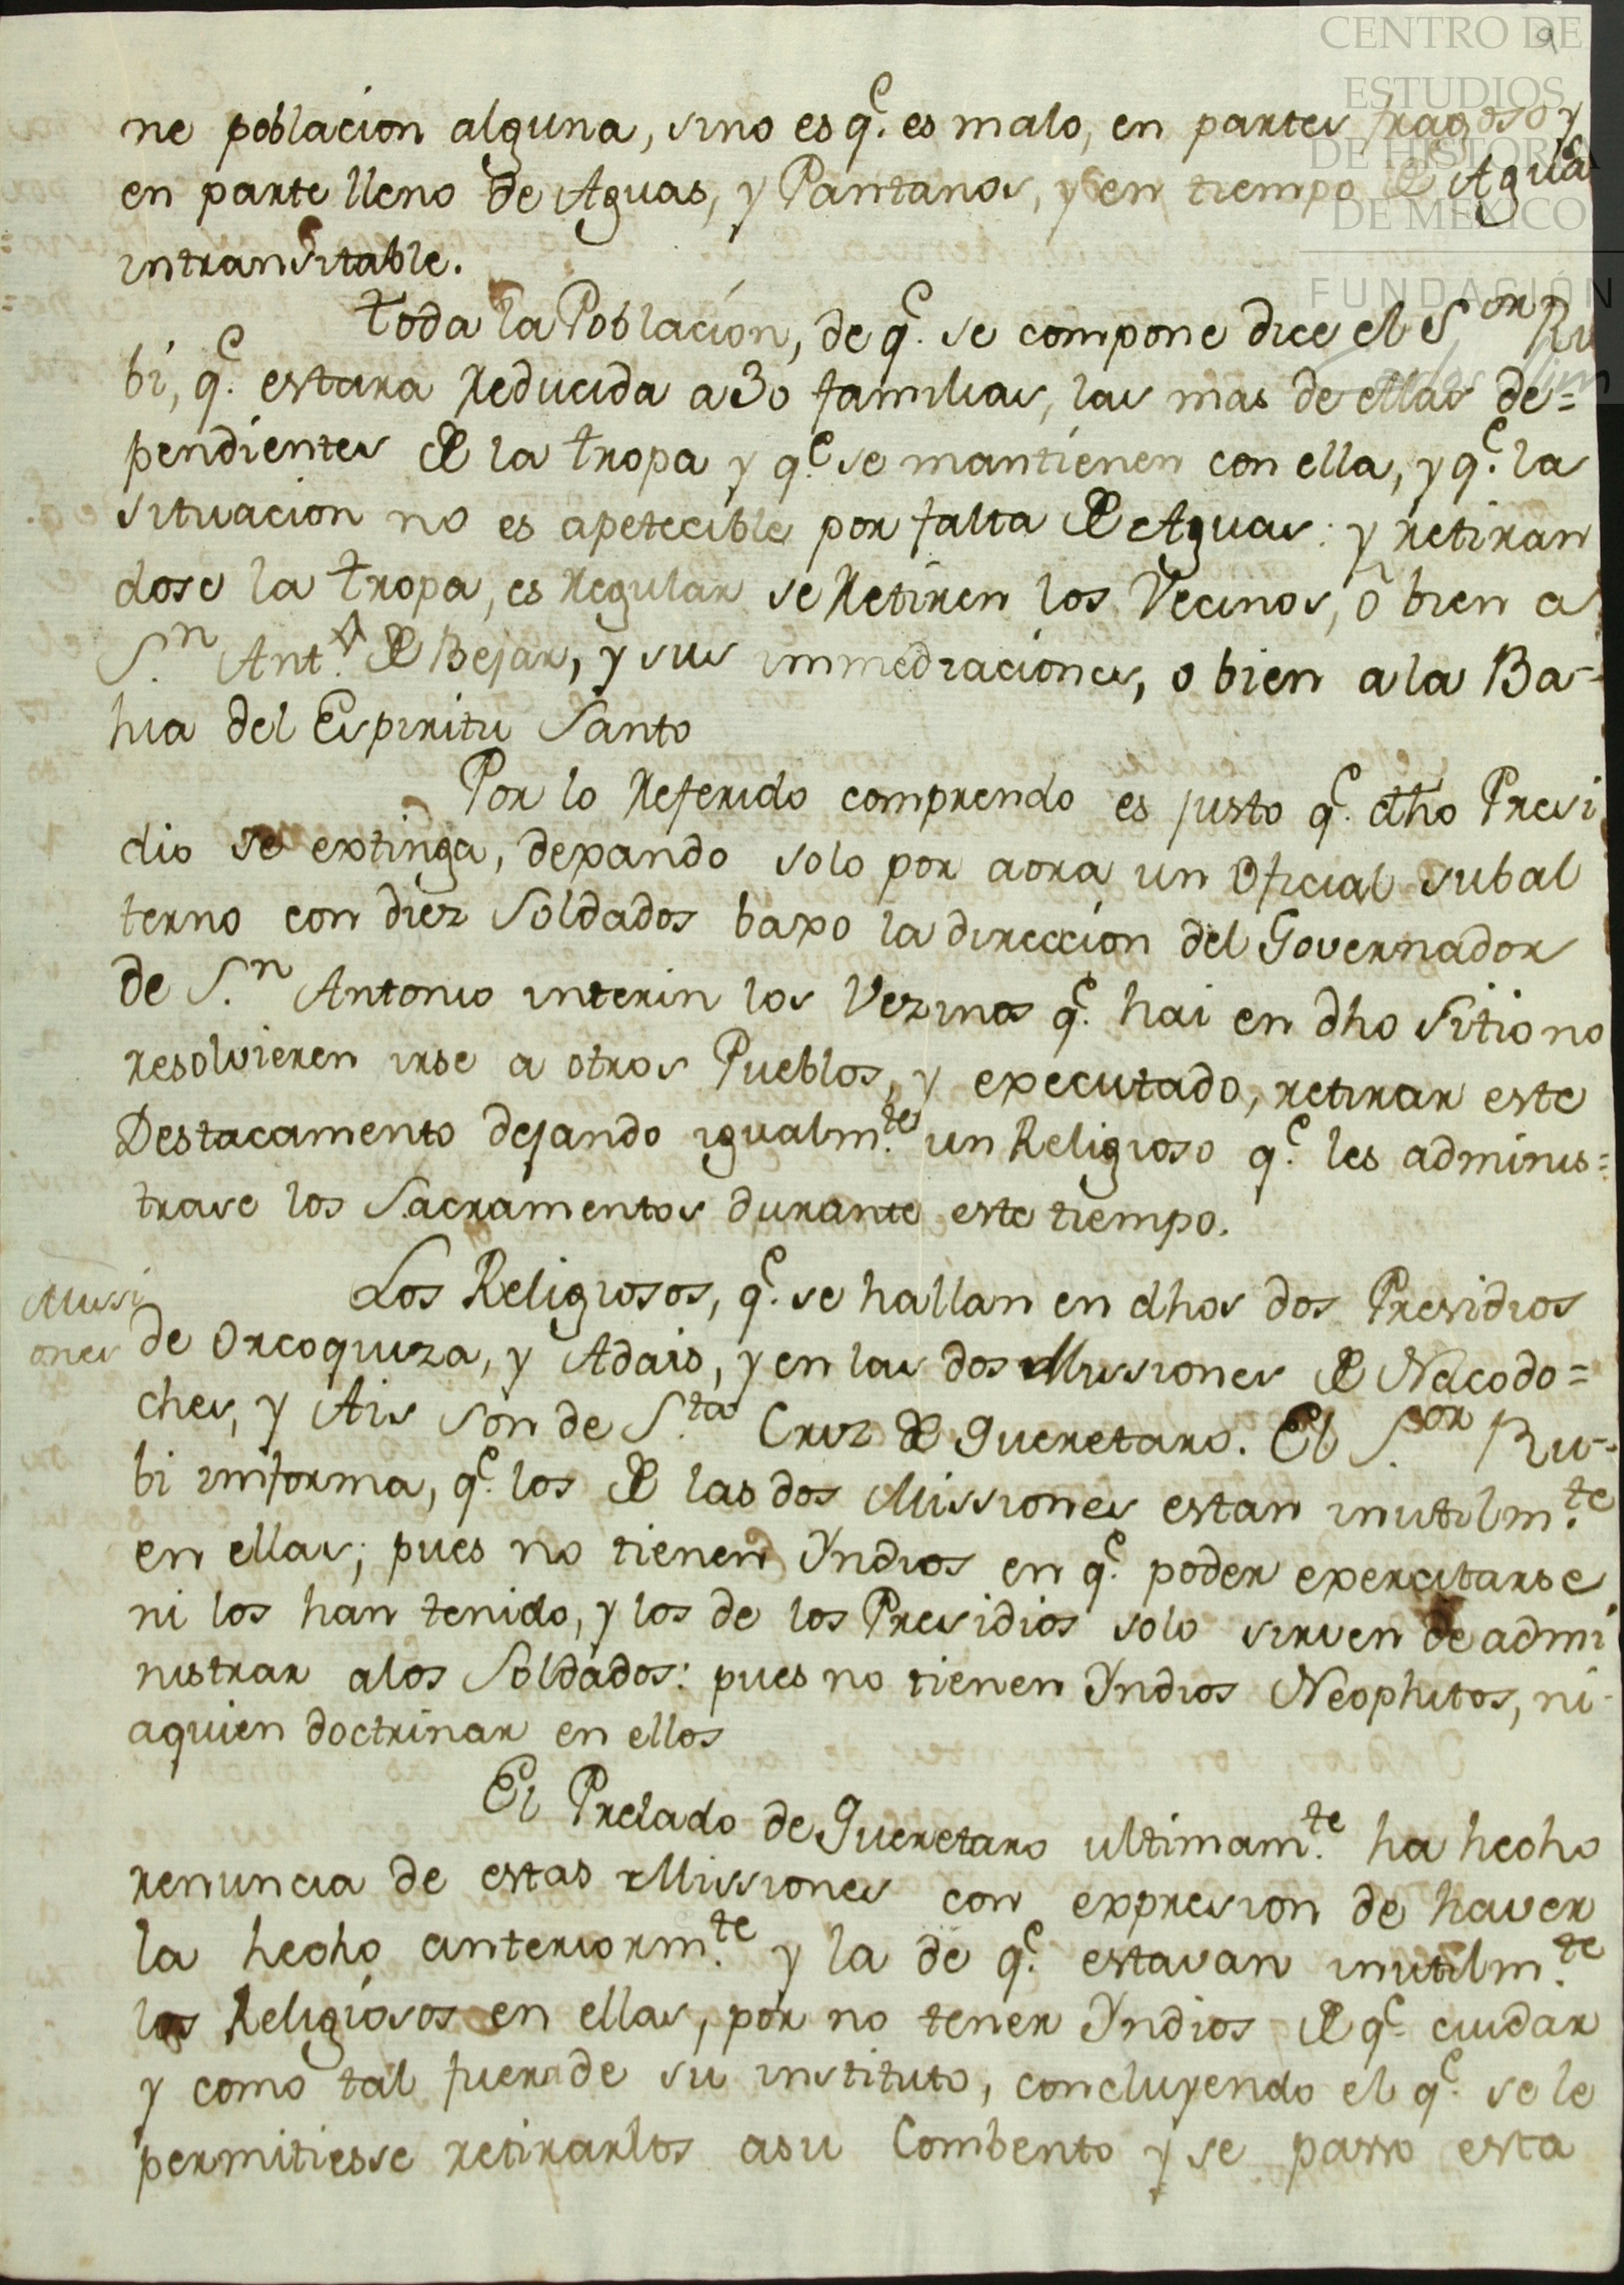 9
CENTRO DE
ESTUDIOS
DE HISTORIA
DE MÉXICO
FUNDACIÓN
Carlos Slim
ne poblacion alguna, sino es q.e es malo, en partes fragoso y
en parte lleno de Aguas, y Pantanos, y en tiempo de Agua
intransitable.
toda la Población, de q.e se compone dice el S.or Ru
bí, q.e estara Reducida a 30 familias, las mas de ellas de=
pendientes de la tropa y q.e se mantienen con ella, y q.e la
situacion no es apetecible por falta de Aguas: y retiran
dose la tropa, es Regular se Retiren los Vecinos, ó bien a
S.n Ant.o de Bejar, y sus immediaciones, o bien a la Ba-
hia del Espiritu Santo
Por lo Referido comprendo es justo q.e dho Presi
dio se extinga, dexando solo por aora un Oficial subal
terno con diez Soldados baxo la direccion del Governador
de S.n Antonio interin los Vezinos q.e hai en dho Sitio no
resolvieren irse a otros Pueblos, y executado, retirar este
Destacamento dejando igualm.te un Religioso q.e les adminis=
trase los Sacramentos durante este tiempo.
Missi
ones
Los Religiosos, q.e se hallan en dhos dos Presidios
de Orcoquiza, y Adais, y en las dos Missiones de Nacodo=
ches, y Ais son de S.ta Cruz de Queretaro. El S.or Ru-
bi imforma, q.e los de las dos Missiones estan inutilm.te
en ellas; pues no tienen Yndios en q.e poder exercitarse
ni los han tenido, y los de los Presidios solo sirven de admi
nistrar a los Soldados: pues no tienen Yndios Neophitos, ni
aquien doctrinar en ellos
El Prelado de Queretaro ultimam.te ha hecho
renuncia de estas Missiones con expresion de haver
la hecho anteriorm.te y la de q.e estavan inutilm.te
los Religiosos en ellas, por no tener Yndios de q.e cuidar
y como tal fuera de su instituto, concluyendo el q.e se le
permitiesse retirarlos asu Combento y se passo esta